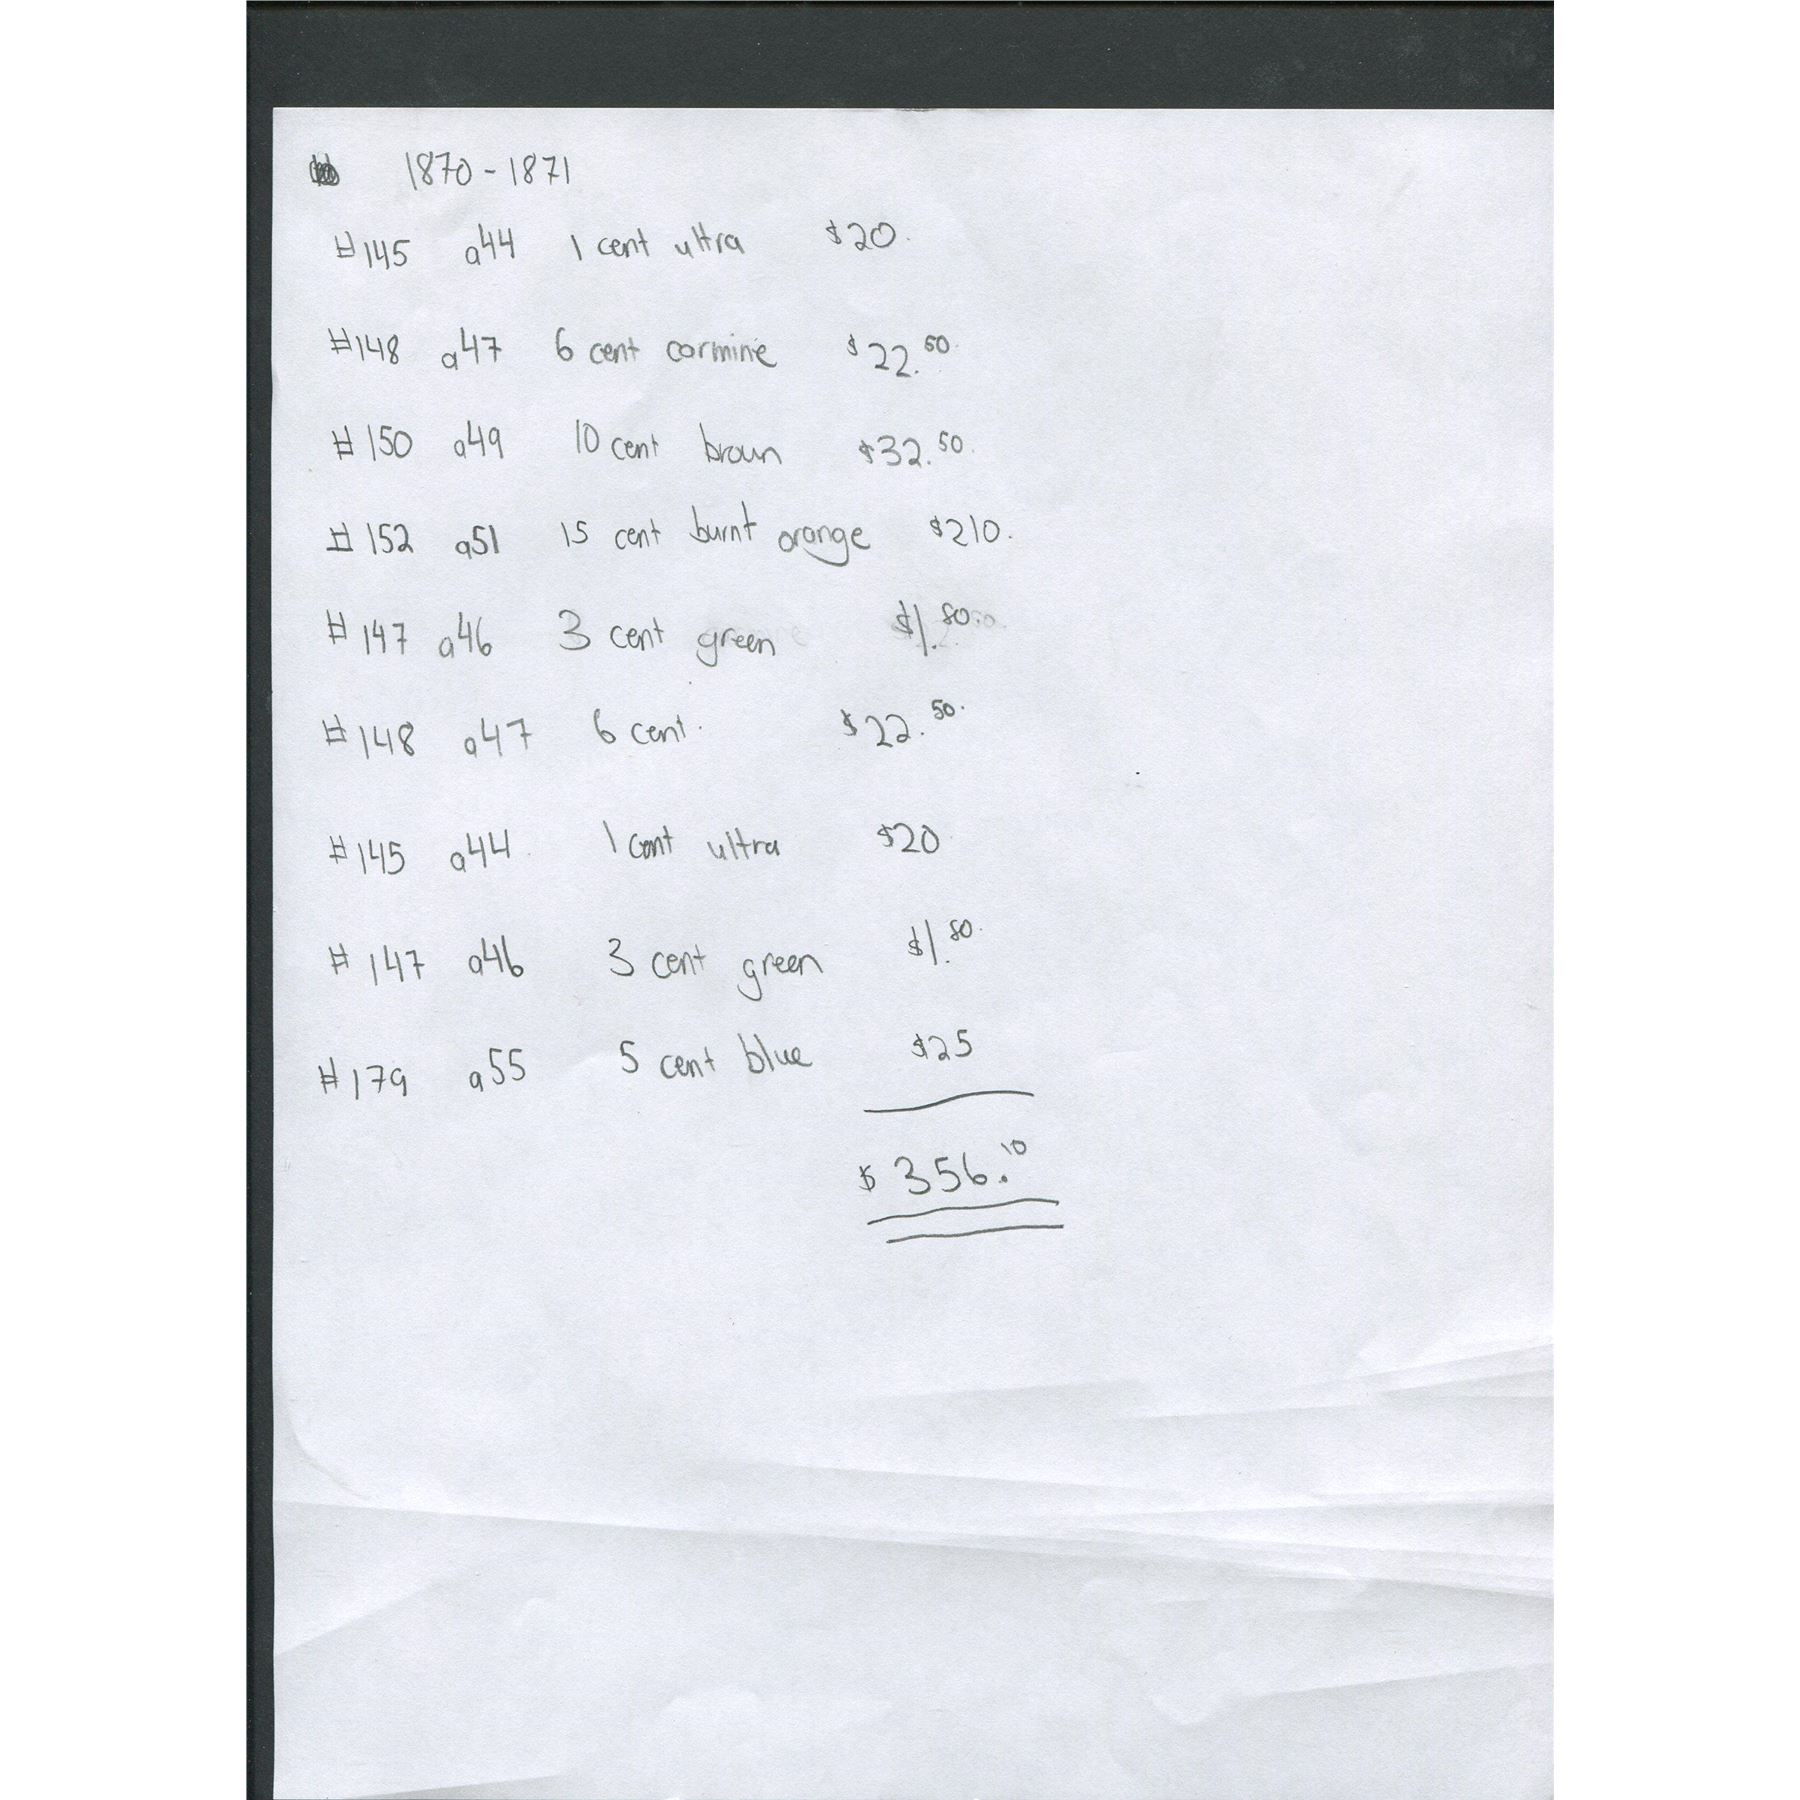 1870-1871
#145 a44 1 cent ultra $20.
#148 a47 6 cent carmine $22.50
#150 a49 10 cent brown $32.50.
#152 a51 15 cent burnt orange $210.
#147 a46 3 cent green $1.80.
#148 a47 6 cent. $22.50.
#145 a44 1 cent ultra $20
#147 a46 3 cent green $1.80.
#179 a55 5 cent blue $25
$356.10